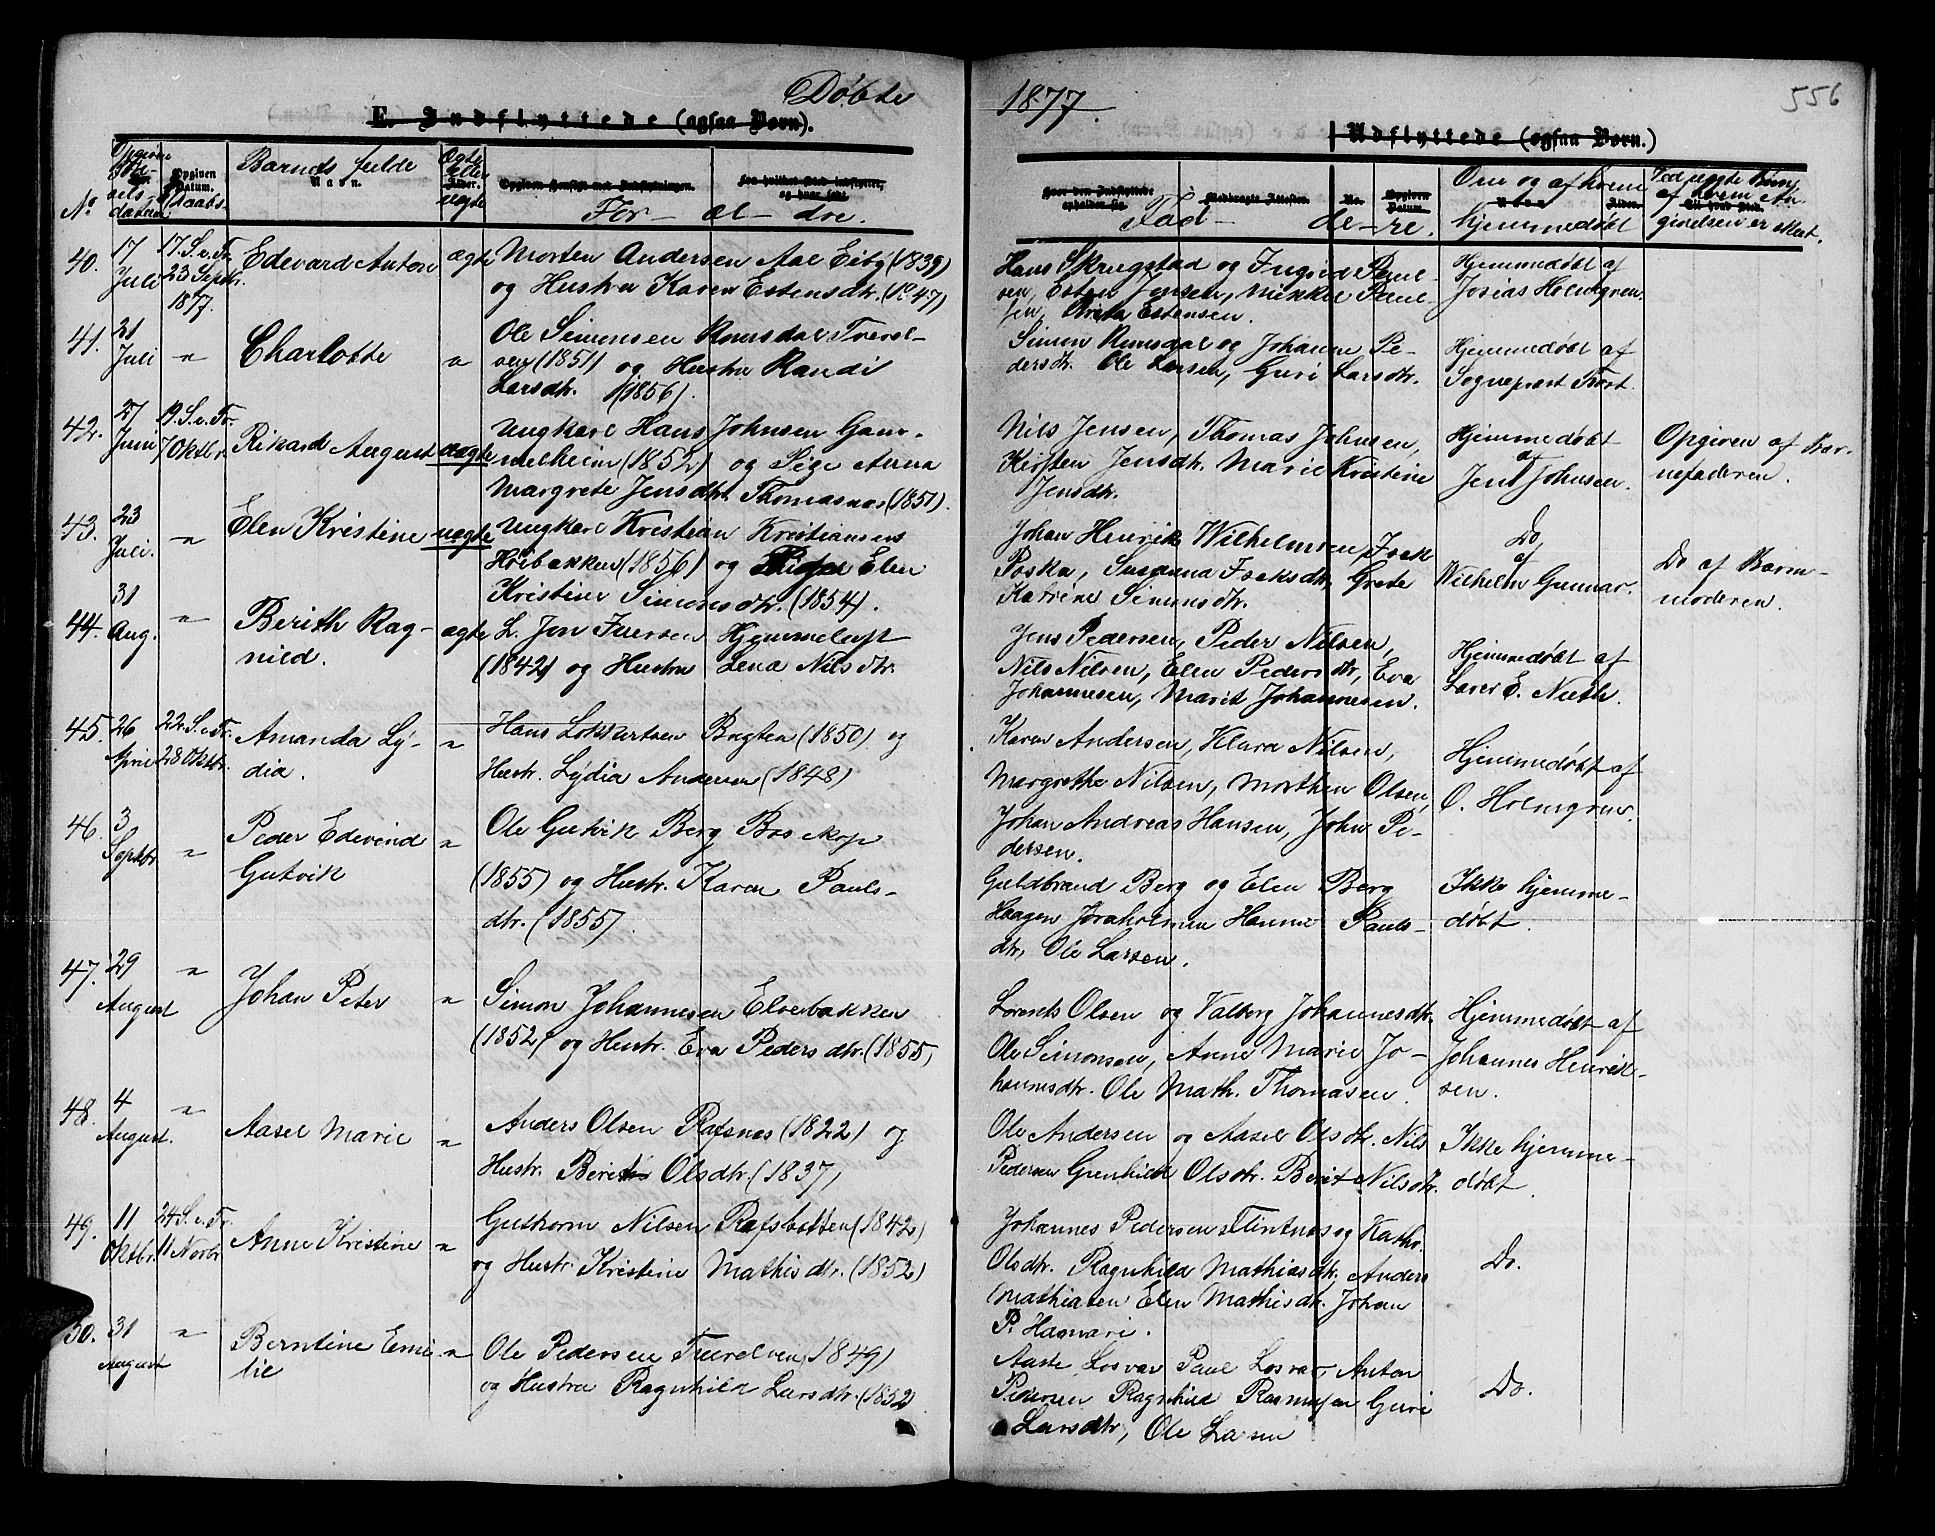 Døbte
1877.
556
E. Indflyttede (ogsaa Børn).
Udflyttede (ogsaa Børn.)
No
Barnets fulde
Navn.
Opgiven Datum.
Daabs-
Ægte eller uægte
For- æl- dre.
Fad- de-re.
Om og af hvem
hjemmedøbt
Ved uægte Børn
af hvem An-
givelsen er skeet.
40.
17 Juli
17. S. e. Tr.
23 Septbr.
1877.
Edevard Anton
ægte
Morten Andersen Aae Eiby (1839)
og Hustru Karen Estensdtr. (1847)
Hans Skrugstad og Ingrid Paul-
sen, Esten Jensen, Mikkel Paul-
sen, Brita Estensen.
Hjemmedøbt af
Josias Holmgren.
41.
21 Juli
"
Charlotte
"
Ole Simensen Romsdal Tverel-
ven (1851) og Hustru Randi
Larsdtr. (1856).
Simon Rumsdal og Johanne Pe-
dersdtr. Ole Larsen, Guri Larsdtr.
Hjemmedøbt af
Sogneprest
42.
27 Juni
19. S. e. Tr.
7 Oktbr.
Rikard August
uægte
Ungkarl Hans Johnsen Gam-
melheim (1852) og Pige Anna
Margrete Jensdtr. Thomasnæs (1851).
Nils Jensen, Thomas Johnsen,
Kirsten Jensdtr. Marie Kristine
Jensdtr.
Hjemmedøbt
af
Jens Johnsen.
Opgiven af Bar-
nefaderen.
43.
23 Juli.
"
Elen Kristine
uægte
Ungkarl Kristian Kristiansen
Høibakken (1856) og Pige Elen
Kristine Simonsdtr. (1854).
Johan Henrik Wilhelmsen, Isak
Poska, Susanna Isaksdtr, Grete
Katrine Simonsdtr.
Do
af
Wilhelm Gunnar.
Do af Barn-
moderen.
44.
31 Aug.
"
Berith Rag-
nild.
ægte
L. Jon Iversen Hjemmeluft
(1842) og Hustru Lena Nilsdtr.
Jens Pedersen, Peder Nilsen,
Nils Nilsen, Elen Pedersdtr, Eva
Johannesen, Marit Johannesen.
Hjemmedøbt af
Larer E. Nutti.
45.
26 April
22. S. e. Tr.
28 Oktbr.
Amanda Ly-
dia.
"
Hans Lokkertsen Bugten (1850) og
Hustr. Lydia Andersen (1848)
Karen Andersen, Klara Nilsen,
Margrethe Nilsen, Morthen Olsen,
Johan Andreas Hansen, John Pe-
dersen.
Hjemmedøbt af
O. Holmgren.
46.
3 Septbr.
"
Peder Edevind
Gutvik
"
Ole Gutvik Berg Bossekop
(1855) og Hustr. Karen Pauls-
dtr. (1855).
Guldbrand Berg og Elen Berg
Haagen Joraholmen Hanne Pauls-
dtr, Ole Larsen.
Ikke hjemme-
døbt.
47.
29 August
"
Johan Peter
"
Simon Johannesen Elvebakken
(1852) og Hustr. Eva Pedersdtr. (1855)
Lorents Olsen og Valborg Johannesdtr.
Ole Simonsen, Anne Marie Jo-
hannesdtr. Ole Math. Thomasen.
Hjemmedøbt af
Johannes Henrik-
sen.
48.
4 August.
"
Aasel Marie
"
Anders Olsen Rafsnæs (1822) og
Hustr. Berit Olsdtr. (1837)
Ole Andersen og Aasel Olsdtr. Nils
Pedersen Gunhild Olsdtr. Berit Nilsdtr.
Ikke hjemme-
døbt.
49.
11 Oktbr.
24 S. e. Tr.
11 Novbr.
Anne Kristine
"
Guthorm Nilsen Rafsbotten (1842)
og Hustr. Kristine Mathisdtr. (1852)
Johannes Pedersen Flintnæs og Kathr.
Olsdtr. Ragnhild Mathiasdtr, Anders
Mathiasen Elen Mathisdtr. Johan
P. Hannari.
Do.
50.
31 August
"
Berntine Emi-
lie
"
Ole Pedersen Tverelven, (1849)
og Hustru Ragnhild Larsdtr. (1852)
Aaste Losvar Paul Losvar, Anton
Pedersen Ragnhild Rasmussen Guri
Larsdtr, Ole Larsen
Do.